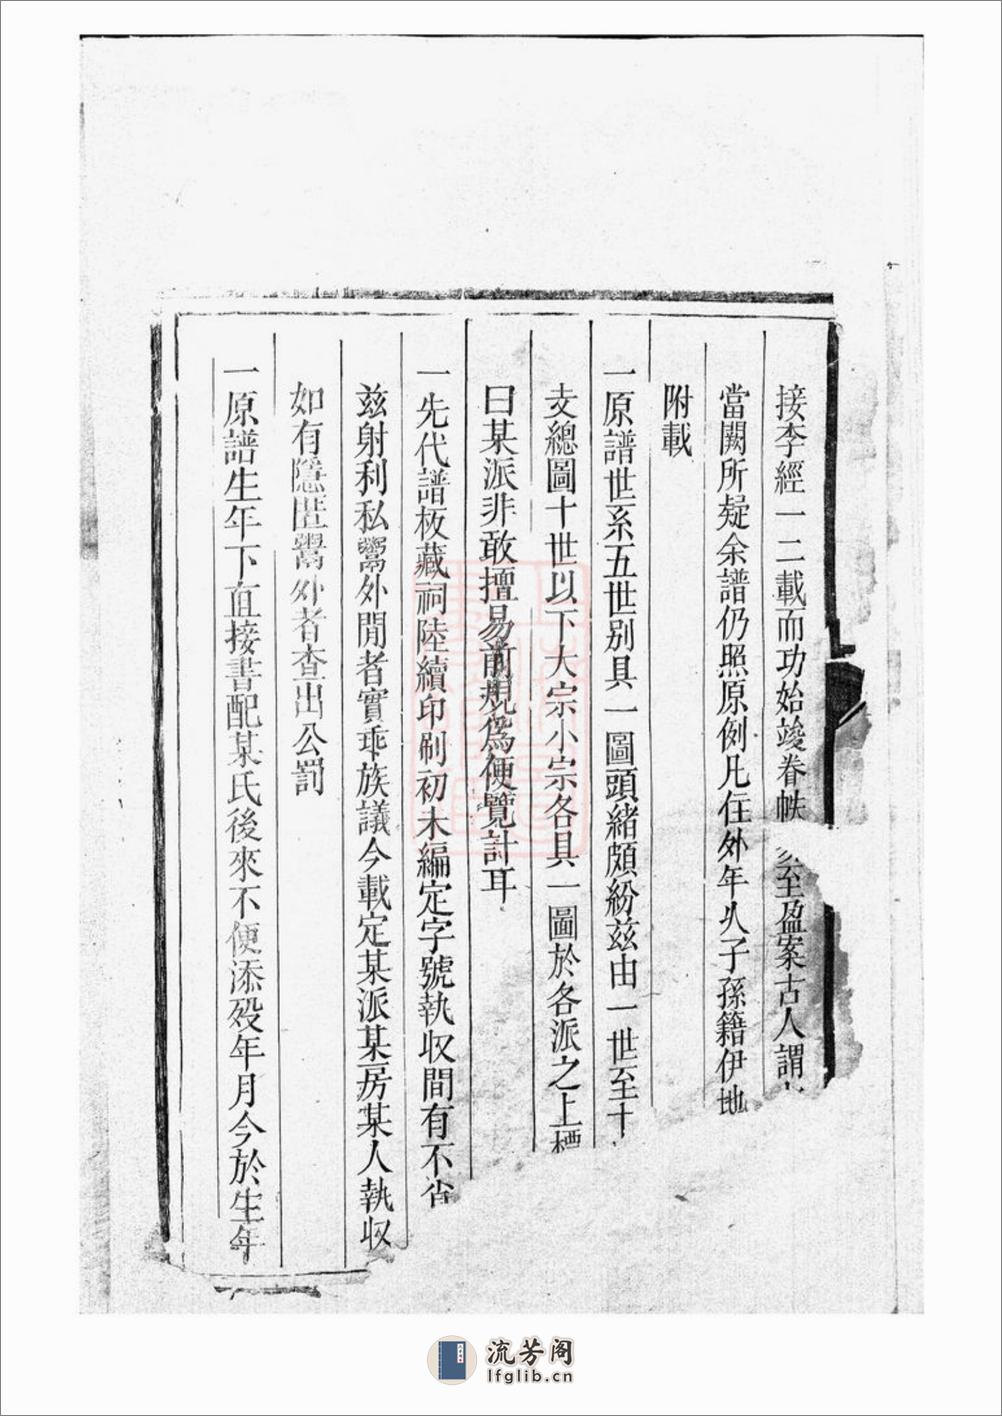 接李經一二載而功始竣卷帙至盈案古人謂
當闕所疑余譜仍照原例凡住外年久子孫籍伊地
附載
一原譜世系五世别具一圖頭緒頗紛兹由一世至十
支總圖十世以下大宗小宗各具一圖於各派之上標
曰某派非敢擅易前規爲便覽計耳
一先代譜板藏祠陸續印刷初未編定字號執収間有不省
兹射利私鬻外閒者實乖族議今載定某派某房某人執収
如有隱匿鬻外者查出公罰
一原譜生年下直接書配某氏後來不便添殁年月今於生年
流芳阁
lfglib.cn